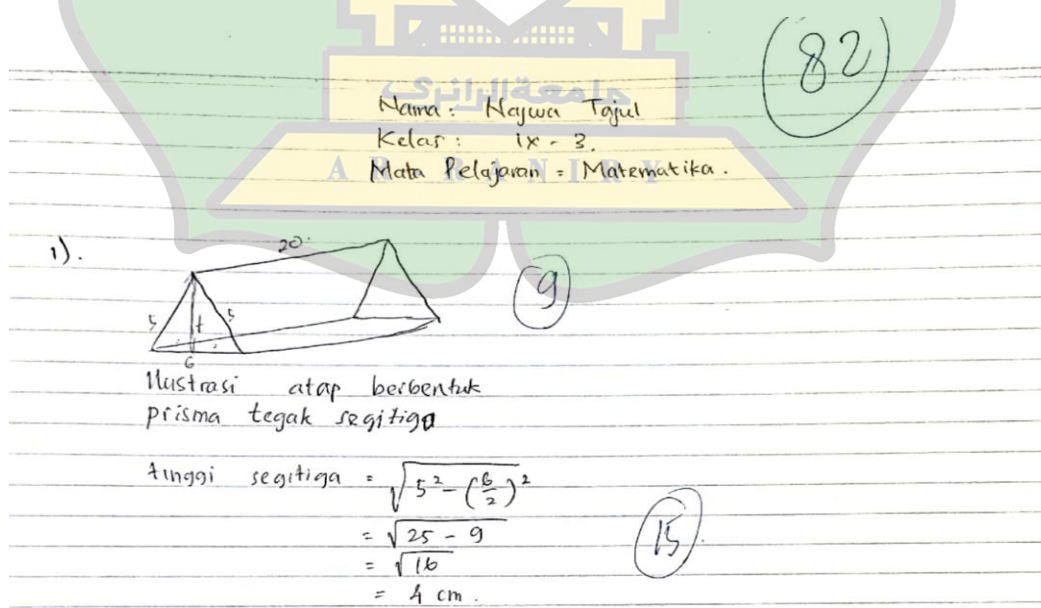 82
جامعة الرانري
Nama : Najwa Tajul
Kelas : ix - 3.
A R - R A N I R Y
Mata Pelajaran = Matematika .
1).
20
9
5 t 5
6
Ilustrasi atap berbentuk
prisma tegak segitiga
tinggi segitiga = √5² - (6/2)²
= √25 - 9
15
= √16
= 4 cm .